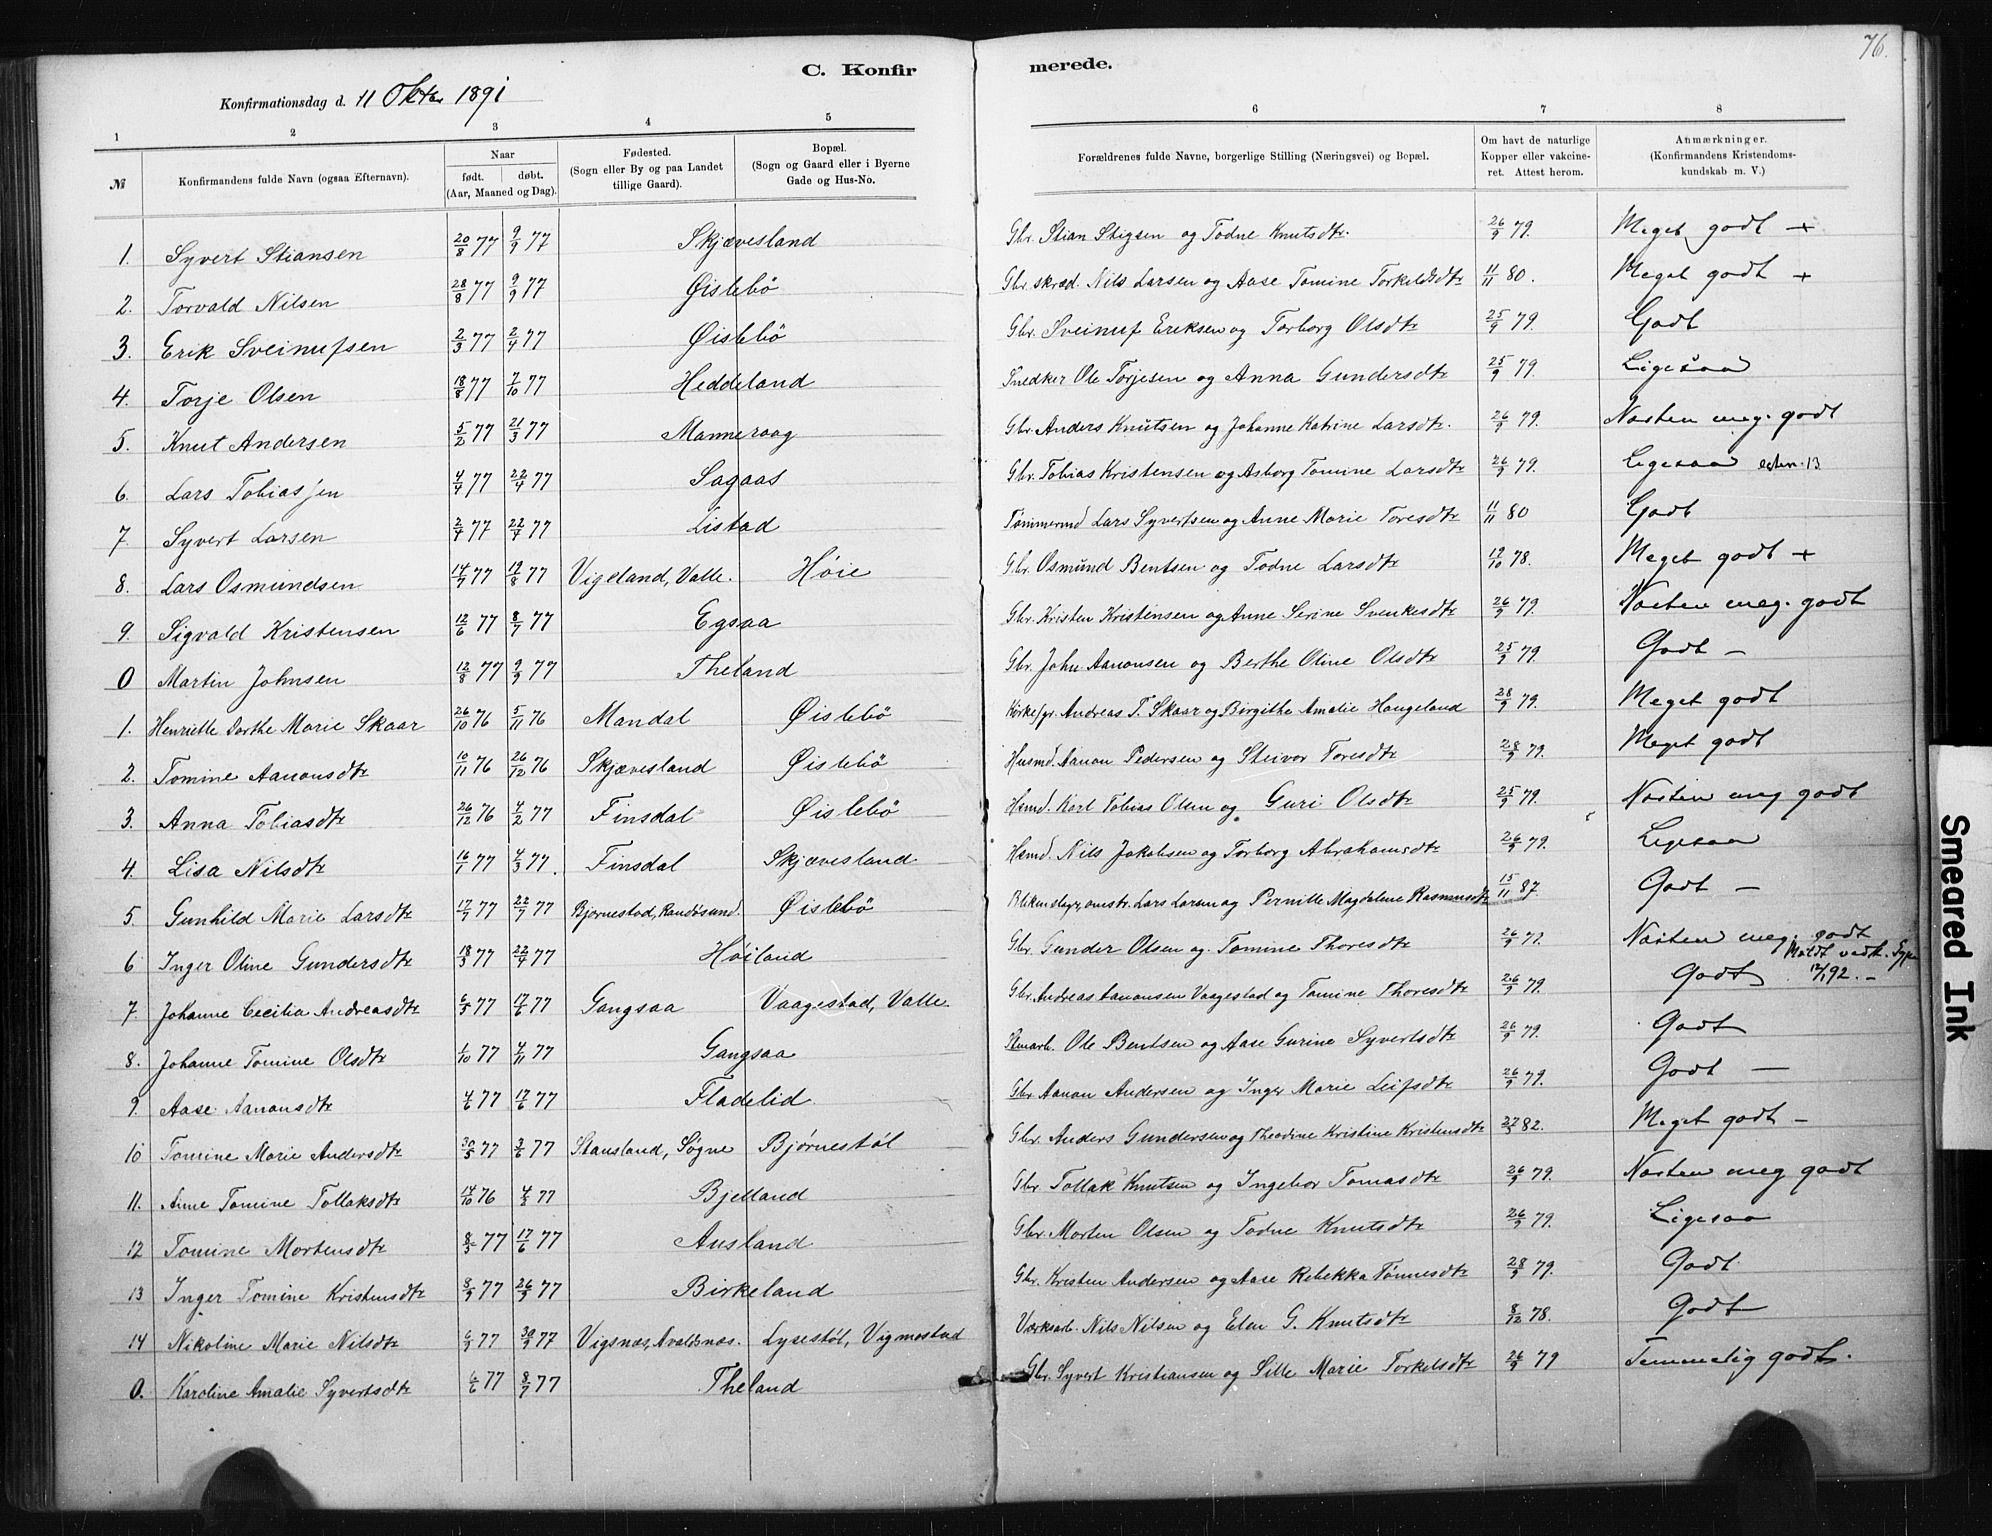 76.
C. Konfirmerede.
Konfirmationsdag d. 11 Oktr 1891
1 2 3 4 5 6 7 8
№ Konfirmandens fulde Navn (ogsaa Efternavn). Naar født. døbt. (Aar, Maaned og Dag). Fødested. (Sogn eller By og paa Landet tillige Gaard). Bopæl. (Sogn og Gaard eller i Byerne Gade og Hus-No. Forældrenes fulde Navne, borgerlige Stilling (Næringsvei) og Bopæl. Om havt de naturlige Kopper eller vakcineret. Attest herom. Anmærkninger. (Konfirmandens Kristendomskundskab m. V.)
1. Syvert Stiansen 20/8 77 9/9 77 Skjævesland Gbr. Stian Stigsen og Todne Knutsdtr. 26/9 79. Meget godt +
2. Torvald Nilsen 28/8 77 9/9 77 Øislebö Gbr. skræd. Nils Larsen og Aase Tomine Torkeldsdtr 11/11 80. Meget godt +
3. Erik Sveinufsen 2/3 77 2/4 77 Øislebö Gbr. Sveinuf Eriksen og Torborg Olsdtr 25/9 79. Godt
4. Torje Olsen 18/8 77 7/10 77 Heddeland Snedker Ole Torjesen og Anna Gundersdtr 25/9 79. Ligesaa
5. Knut Andersen 5/2 77 21/3 77 Manneraag Gbr. Anders Knutsen og Johanne Katrine Larsdtr. 26/9 79. Næsten meg. godt
6. Lars Tobiassen 4/4 77 22/4 77 Sagaas Gbr. Tobias Kristensen og Asborg Tomine Larsdtr 26/9 79. Ligesaa
7. Syvert Larsen 2/4 77 22/4 77 Listad Tømmermd Lars Syvertsen og Anne Marie Toresdtr 11/11 80 Godt
8. Lars Osmundsen 14/7 77 19/8 77 Vigeland, Valle. Høie Gbr. Osmund Bentsen og Todne Larsdtr 19/10 78. Meget godt +
9. Sigvald Kristensen 12/6 77 8/7 77 Egsaa Gbr. Kristen Kristensen og Anne Serine Svenkesdtr 26/9 79. Næsten meg. godt
0 Martin Johnsen 12/8 77 9/9 77 Theland Gbr. John Aanonsen og Berthe Oline Olsdtr 25/9 79. Godt –
1. Henriette Dorthe Marie Skaar 26/10 76 5/11 76 Mandal Øislebö Kirkesgr. Andreas T. Skaar og Birgithe Amalie Haugeland 28/9 79. Meget godt
2. Tomine Aanonsdtr 10/11 76 26/12 76 Skjævesland Øislebö Husmd. Aanon Pedersen og Steivor Toresdtr 28/9 79. Meget godt
3. Anna Tobiasdtr 26/12 76 4/2 77 Finsdal Øislebö Hsmd. Karl Tobias Olsen og Guri Olsdtr 25/9 79. Næsten meg godt
4. Lisa Nilsdtr 16/1 77 4/3 77. Finsdal Skjævesland Hsmd. Nils Jakobsen og Torborg Abrahamsdtr 26/9 79. Ligesaa
5. Gunhild Marie Larsdtr 17/7 77 22/7 77 Bjørnestad, Randösund. Øislebö Lars Larsen og Pernille Magdalene Rasmusdtr 15/11 87. Godt –
6 Inger Oline Gundersdtr 18/3 77 22/4 77 Høiland Gbr. Gunder Olsen og Tomine Thoresdtr 26/9 79. Næsten meg. godt
7. Johanne Cecilia Andreasdtr 6/5 77 17/6 77 Gangsaa Vaagestad, Valle. Gbr. Andreas Aanonsen Vaagestad og Tomine Thoresdtr 26/9 79. Godt 12/1 92. –
8. Johanne Tomine Olsdtr 1/10 77 4/11 77 Gangsaa Ole Bentsen og Aase Gurine Syvertsdtr 26/9 79. Godt
9. Aase Aanonsdtr 4/6 77 17/6 77 Fladelid Gbr. Aanon Andersen og Inger Marie Leifsdtr 26/9 79. Godt –
10 Tomine Marie Andersdtr 30/5 77 3/6 77 Stausland, Søgne Bjørnestøl Gbr. Anders Gundersen og Theodine Kristine Kristensdtr 27/3 82. Meget godt –
11. Anne Tomine Tollaksdtr 14/10 76 4/3 77 Bjelland Gbr. Tollak Knutsen og Ingebor Tomasdtr 26/9 79. Næsten meg godt
12 Tomine Mortensdtr 8/5 77 17/6 77 Ausland Gbr. Morten Olsen og Todne Knutsdtr 26/9 79. Ligesaa
13 Inger Tomine Kristensdtr 8/9 77 26/9 77 Birkeland Gbr. Kristen Andersen og Aase Rebekka Tønnesdtr 28/9 79. Godt
14 Nikoline Marie Nilsdtr 6/9 77 30/9 77 Vigsnæs, Avaldsnæs. Lysestøl, Vigmostad Værksarb. Nils Nilsen og Elen G. Knutsdtr 8/12 78. Godt
0. Karoline Amalie Syvertsdtr 6/6 77 8/7 77 Theland Gbr. Syvert Kristiansen og Sille Marie Torkelsdtr 26/9 79 Temmelig godt.
Smeared Ink